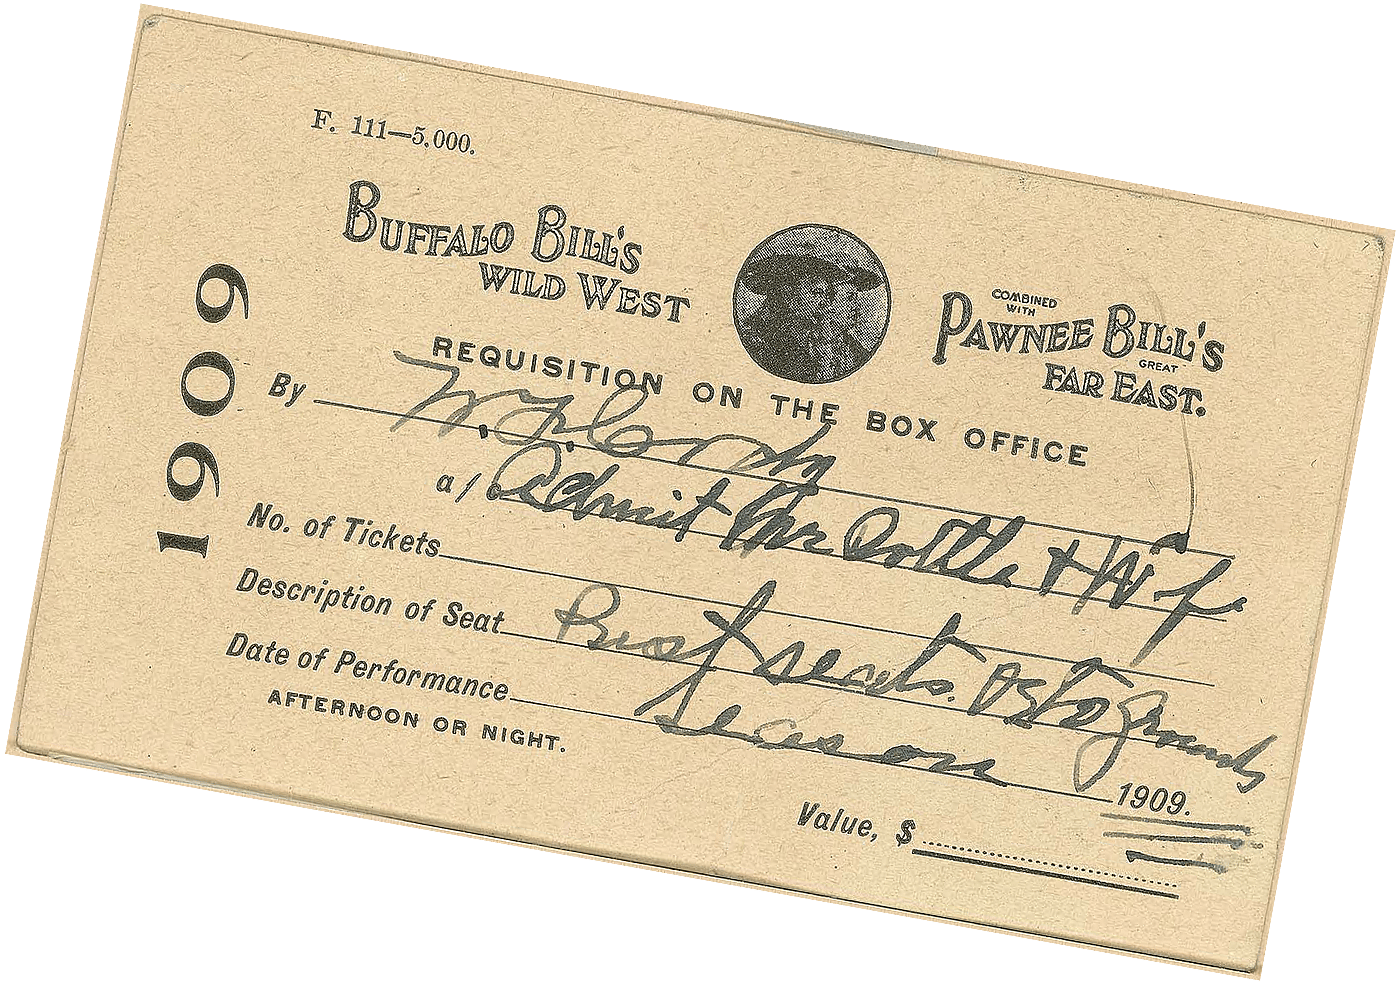 F. 111—5,000.
1909
BUFFALO BILL'S
WILD WEST
COMBINED
WITH
PAWNEE BILL'S
GREAT
FAR EAST.
REQUISITION ON THE BOX OFFICE
By W. F. Cody
a/c Admit Mr & Wife
No. of Tickets
Description of Seat Best seats. As to Grounds
Date of Performance season 1909.
AFTERNOON OR NIGHT.
Value, $